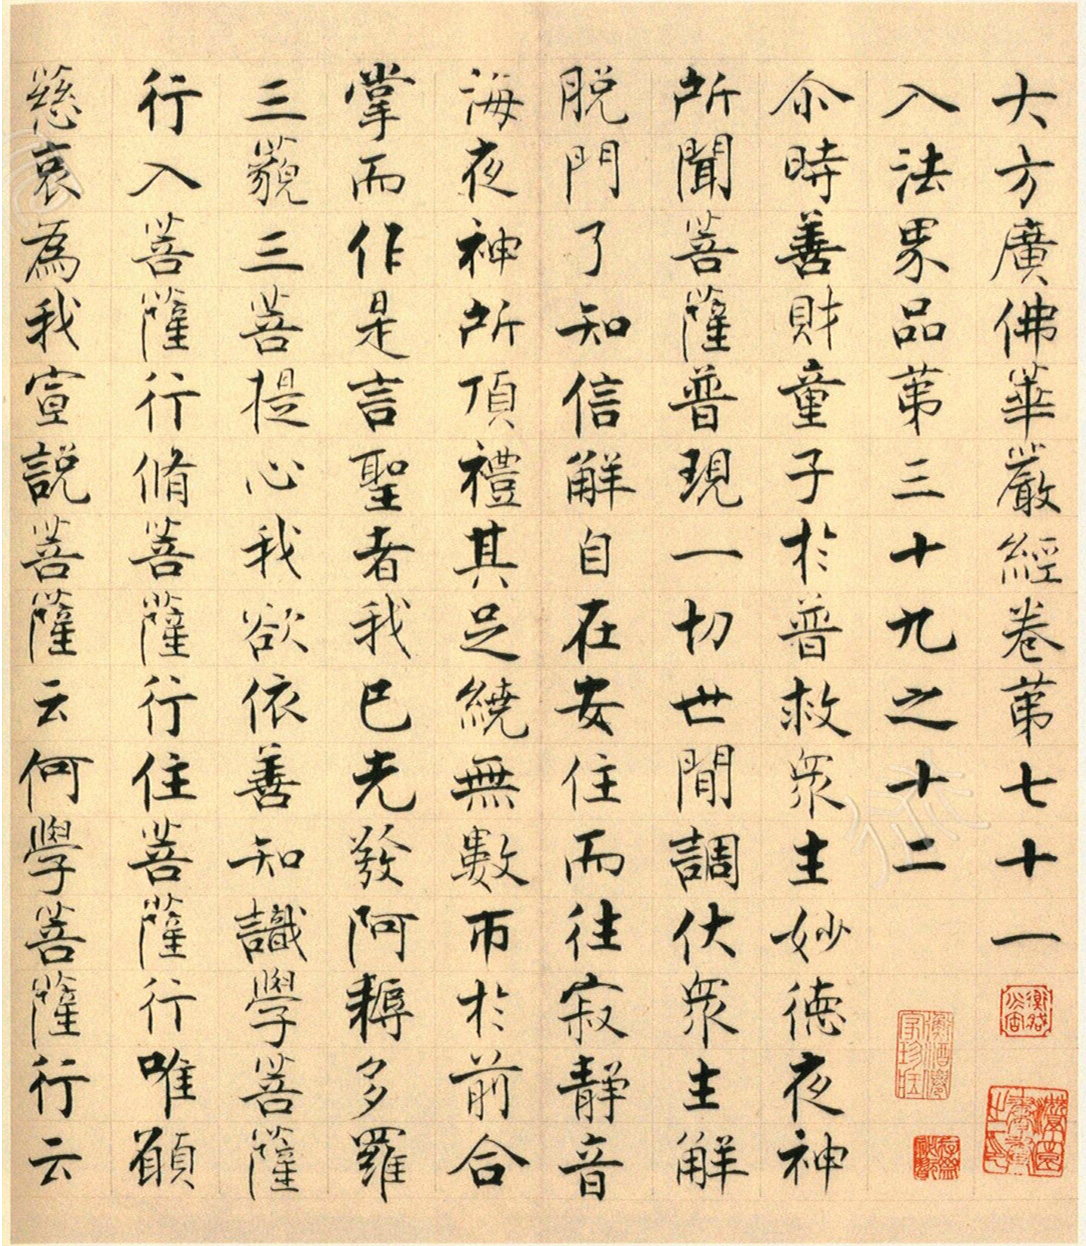 大方廣佛華嚴經卷第七十一
入法界品第三十九之十二
尒時善財童子於普救衆生妙德夜神
所聞菩薩普現一切世間調伏衆生解
脱門了知信解自在安住而往寂靜音
海夜神所頂禮其足繞無數帀於前合
掌而作是言聖者我已先發阿耨多羅
三藐三菩提心我欲依善知識學菩薩
行入菩薩行脩菩薩行住菩薩行唯願
慈哀為我宣説菩薩云何學菩薩行云